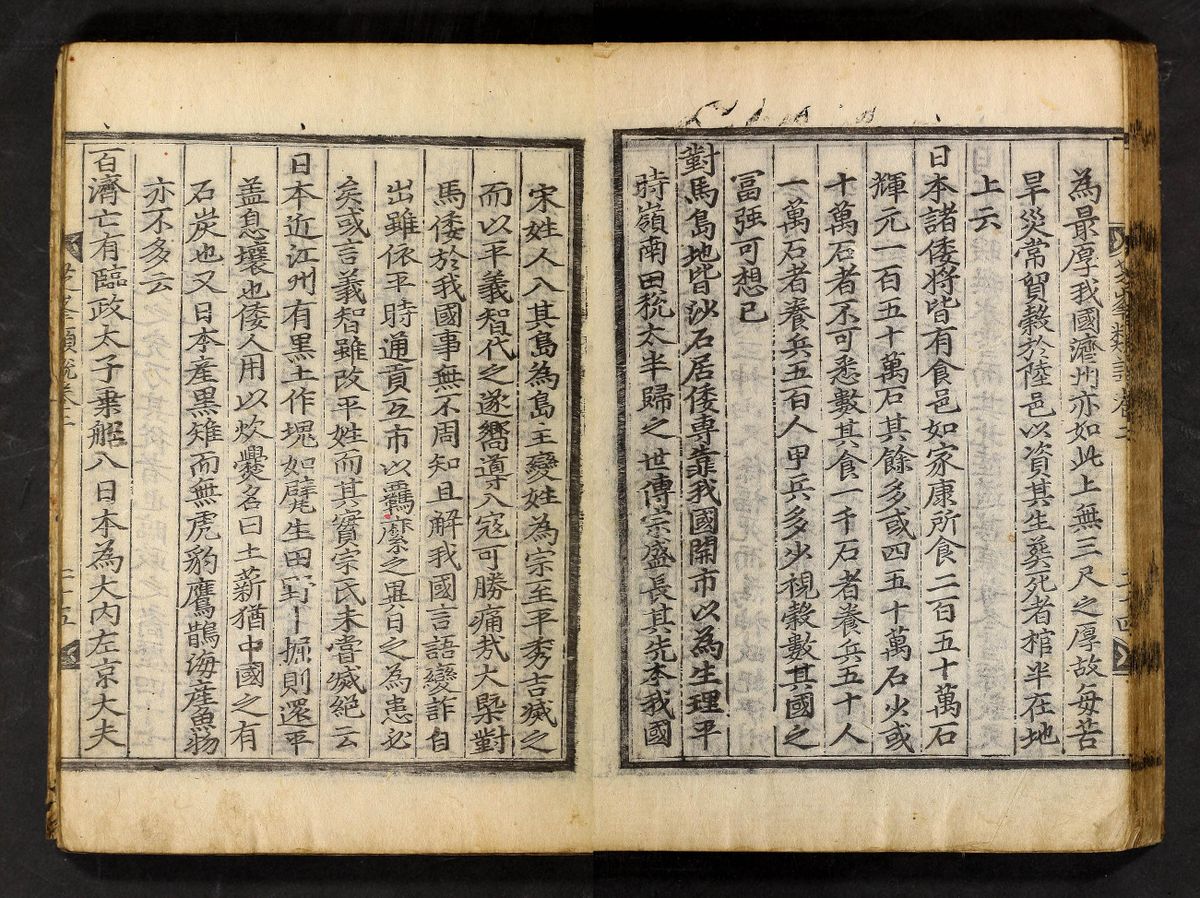 為最厚我國濟州亦如此上無三尺之厚故每苦
旱災常貿穀於陸邑以資其生葬死者棺半在地
上云
日本諸倭將皆有食邑如家康所食二百五十萬石
輝元一百五十萬石其餘多或四五十萬石少或
十萬石者不可悉數其食一千石者養兵五十人
一萬石者養兵五百人甲兵多少視穀數其國之
冨强可想已
對馬島地皆沙石居倭專靠我國開市以為生理平
時嶺南田稅太半歸之世傳宗盛長其先本我國
宋姓人入其島為島主變姓為宗至平秀吉滅之
而以平義智代之遂嚮導入寇可勝痛哉大槩對
馬倭於我國事無不周知且解我國言語變詐自
出雖依平時通貢互市以羈縻之異日之為患必
矣或言義智雖改平姓而其實宗氏未嘗滅絕云
日本近江州有黒土作塊如甓生田野一掘則還平
盖息壤也倭人用以炊爨名曰土薪猶中國之有
石炭也又日本產黒雉而無虎豹鷹鶻海產魚物
亦不多云
百濟亡有臨政太子乗船入日本為大内左京大夫
芝峯類說卷二
二十五